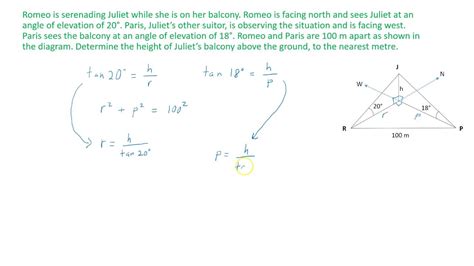 Romeo is serenading Juliet while she is on her balcony. Romeo is facing north and sees Juliet at an
angle of elevation of 20°. Paris, Juliet's other suitor, is observing the situation and is facing west.
Paris sees the balcony at an angle of elevation of 18°. Romeo and Paris are 100 m apart as shown in
the diagram. Determine the height of Juliet's balcony above the ground, to the nearest metre.
tan 20° = h/r
tan 18° = h/p
r² + p² = 100²
r = h/tan 20°
p = h/
J
N
W
h
20°
18°
r
p
R
P
100 m